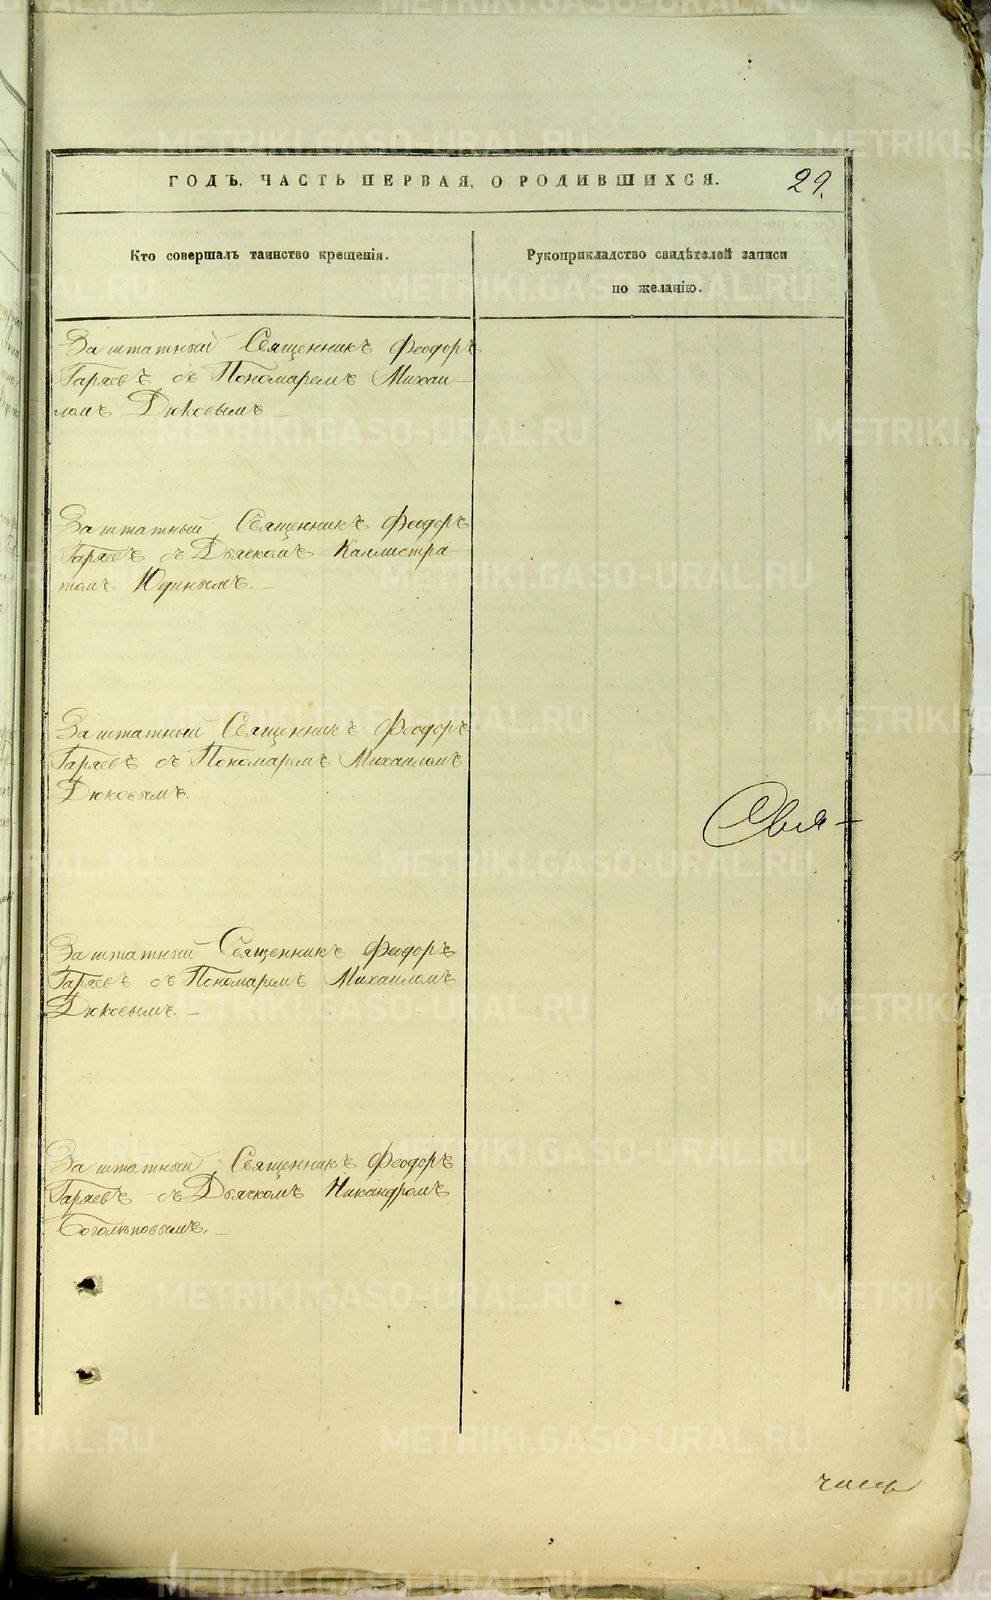 ГОДЪ, ЧАСТЬ ПЕРВАЯ, О РОДИВШИХСЯ. 29.
Кто совершалъ таинство крещенія.
Рукоприкладство свидѣтелей записи
по желанію.
Заштатный Священникъ Феодоръ
Гаряевъ съ Пономаремъ Михаи-
ломъ Дюковымъ
Заштатный Священникъ Феодоръ
Гаряевъ съ Дьячкомъ Каллистра-
томъ Юдинымъ.
Заштатный Священникъ Феодоръ
Гаряевъ съ Пономаремъ Михаиломъ
Дюковымъ.
Свя-
Заштатный Священникъ Феодоръ
Гаряевъ съ Пономаремъ Михаиломъ
Дюковымъ.
Заштатный Священникъ Феодоръ
Гаряевъ съ Дьячкомъ Никандромъ
Боголѣповымъ.
METRIKI.GASO-URAL.RU